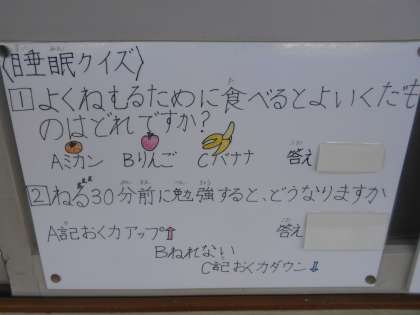 〈睡眠クイズ〉
1 よくねむるために食べるとよいくだも
のはどれですか?
Aミカン Bりんご Cバナナ 答え
2 ねる30分前に勉強すると、どうなりますか
A記おく力アップ⇧ 答え
Bねれない
C記おく力ダウン⇩